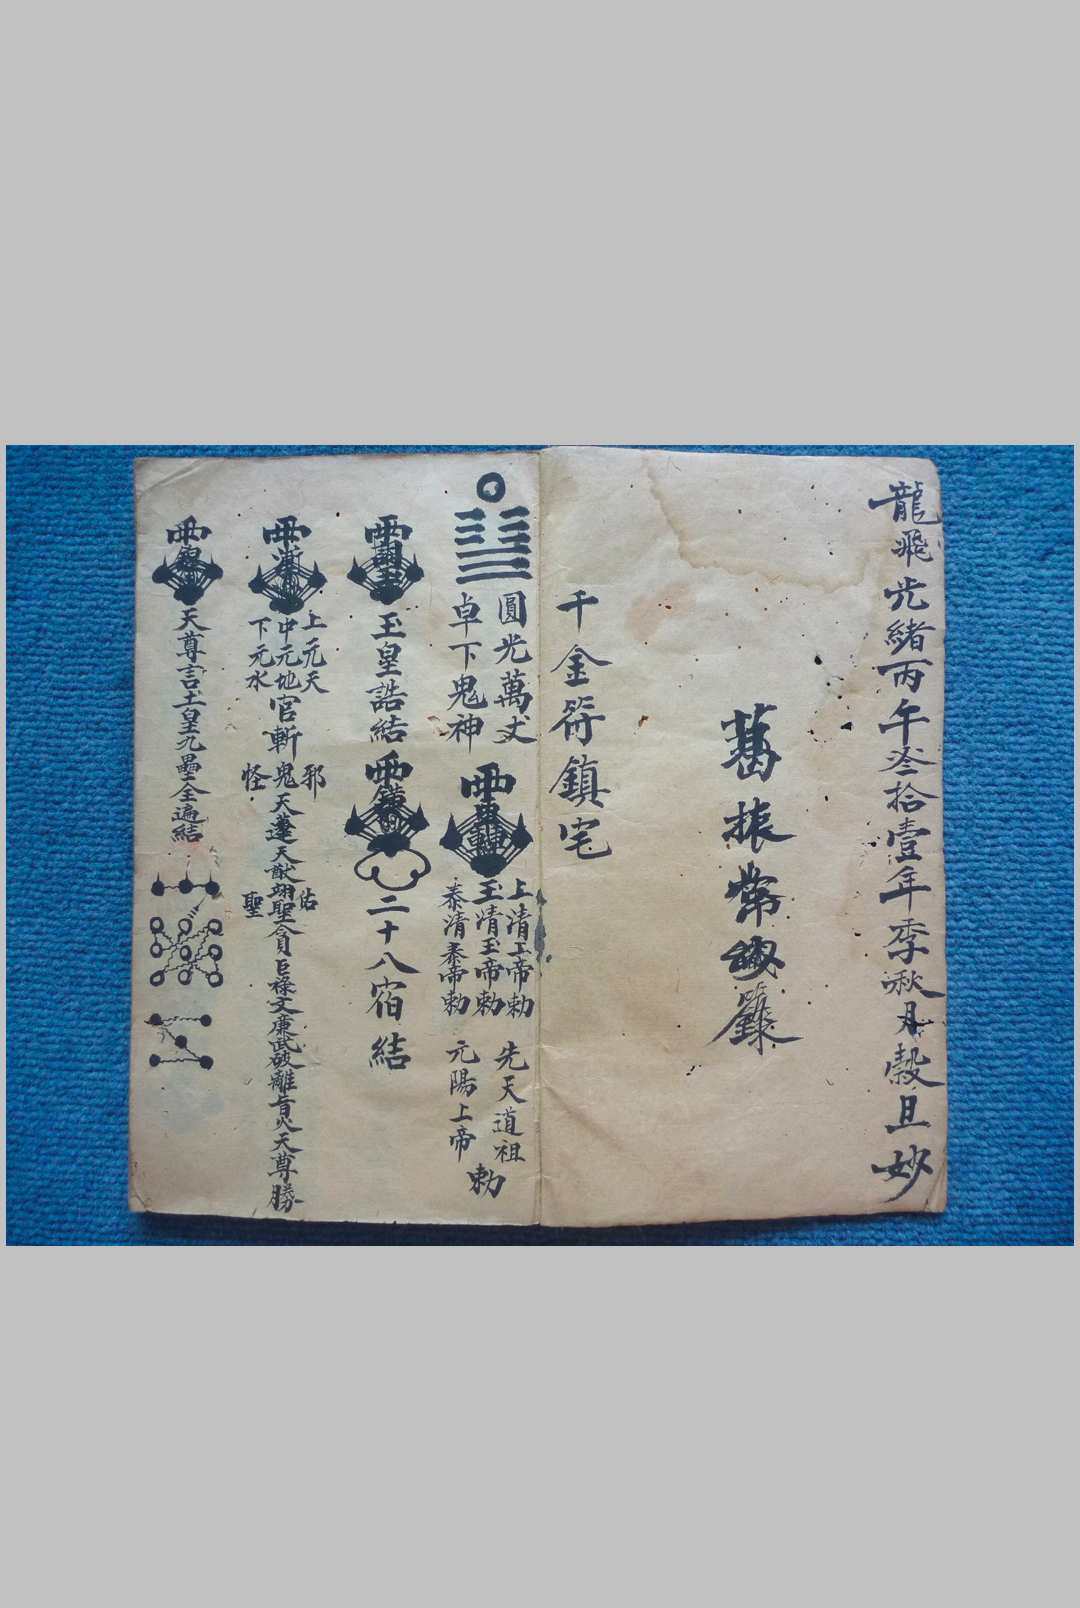 龍飛光緒丙午叁拾壹年季湫月穀旦妙
葛振常籙
千金符鎮宅
圓光萬丈
卓下鬼神
上清玉帝勅
玉清玉帝勅
泰清泰帝勅
先天道祖
元陽上帝
勅
玉皇誥結
二十八宿結
上元天
中元地
下元水
官斬
邪
鬼
怪
天蓬天猷翊聖
佑
聖
貪巨祿文廉武破離天尊勝
天尊言玉皇九壘全遍結